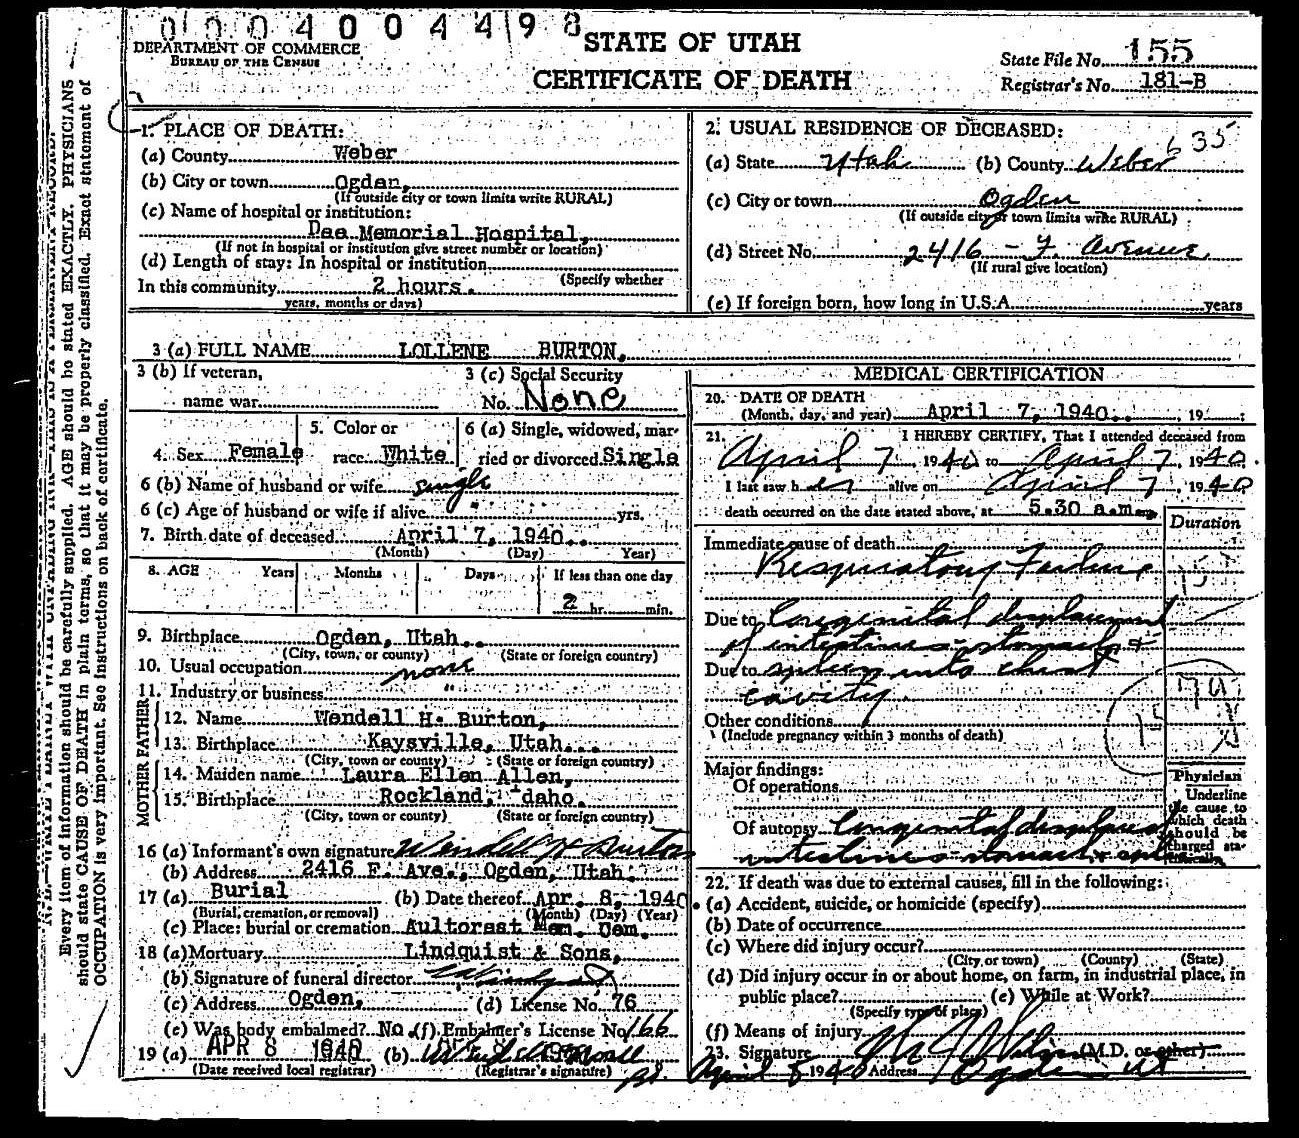 0004004498
DEPARTMENT OF COMMERCE
BUREAU OF THE CENSUS
STATE OF UTAH
CERTIFICATE OF DEATH
State File No. 155
Registrar's No. 181-B
Every item of information should be carefully supplied. AGE should be stated EXACTLY. PHYSICIANS
should state CAUSE OF DEATH in plain terms, so that it may be properly classified. Exact statement of
OCCUPATION is very important. See instructions on back of certificate.
1. PLACE OF DEATH:
(a) County Weber
(b) City or town Ogden,
(If outside city or town limits write RURAL)
(c) Name of hospital or institution:
Dee Memorial Hospital,
(If not in hospital or institution give street number or location)
(d) Length of stay: In hospital or institution
(Specify whether
In this community 2 hours.
years, months or days)
2. USUAL RESIDENCE OF DECEASED:
635
(a) State Utah (b) County Weber
(c) City or town Ogden
(If outside city or town limits write RURAL)
(d) Street No. 2416 - F. Avenue
(If rural give location)
(e) If foreign born, how long in U.S.A. years
3 (a) FULL NAME LOLLENE BURTON,
3 (b) If veteran,
name war
3 (c) Social Security
No. None
4. Sex Female
5. Color or
race White
6 (a) Single, widowed, mar-
ried or divorced Single
6 (b) Name of husband or wife single
6 (c) Age of husband or wife if alive yrs.
7. Birth date of deceased April 7, 1940.
(Month) (Day) Year)
8. AGE Years Months Days If less than one day
2 hr. min.
9. Birthplace Ogden, Utah.
(City, town, or county) (State or foreign country)
10. Usual occupation none
11. Industry or business "
FATHER
12. Name Wendell H. Burton,
13. Birthplace Kaysville, Utah.
(City, town or county) (State or foreign country)
MOTHER
14. Maiden name Laura Ellen Allen,
15. Birthplace Rockland, Idaho.
(City, town or county) (State or foreign country)
16 (a) Informant's own signature Wendell H Burton
(b) Address 2416 F. Ave., Ogden, Utah.
17 (a) Burial (b) Date thereof Apr. 8, 1940
(Burial, cremation, or removal) (Month) (Day) (Year)
(c) Place: burial or cremation Aultorest Mem. Cem.
18 (a) Mortuary Lindquist & Sons,
(b) Signature of funeral director
(c) Address Ogden, (d) License No. 76
(e) Was body embalmed? No (f) Embalmer's License No. 166
19 (a) APR 8 1940 (b)
(Date received local registrar) (Registrar's signature)
MEDICAL CERTIFICATION
20. DATE OF DEATH
(Month, day, and year) April 7, 1940. , 19 ;
21. I HEREBY CERTIFY, That I attended deceased from
April 7, 1940 to April 7, 1940.
I last saw her alive on April 7, 1940
death occurred on the date stated above, at 5.30 a.m.
Duration
Immediate cause of death
Respiratory Failure
Due to Congenital displacement
of intestines - stomach &
Due to spleen into chest
cavity
Other conditions
(Include pregnancy within 3 months of death)
Major findings:
Of operations
Of autopsy Congenital displaced
intestines - stomach &
Physician
Underline
the cause to
which death
should be
charged sta-
tistically.
22. If death was due to external causes, fill in the following:
(a) Accident, suicide, or homicide (specify)
(b) Date of occurrence
(c) Where did injury occur?
(City or town) (County) (State)
(d) Did injury occur in or about home, on farm, in industrial place, in
public place? (e) While at Work?
(Specify type of place)
(f) Means of injury
23. Signature (M.D. or other)
April 8 1940 Address Ogden Ut